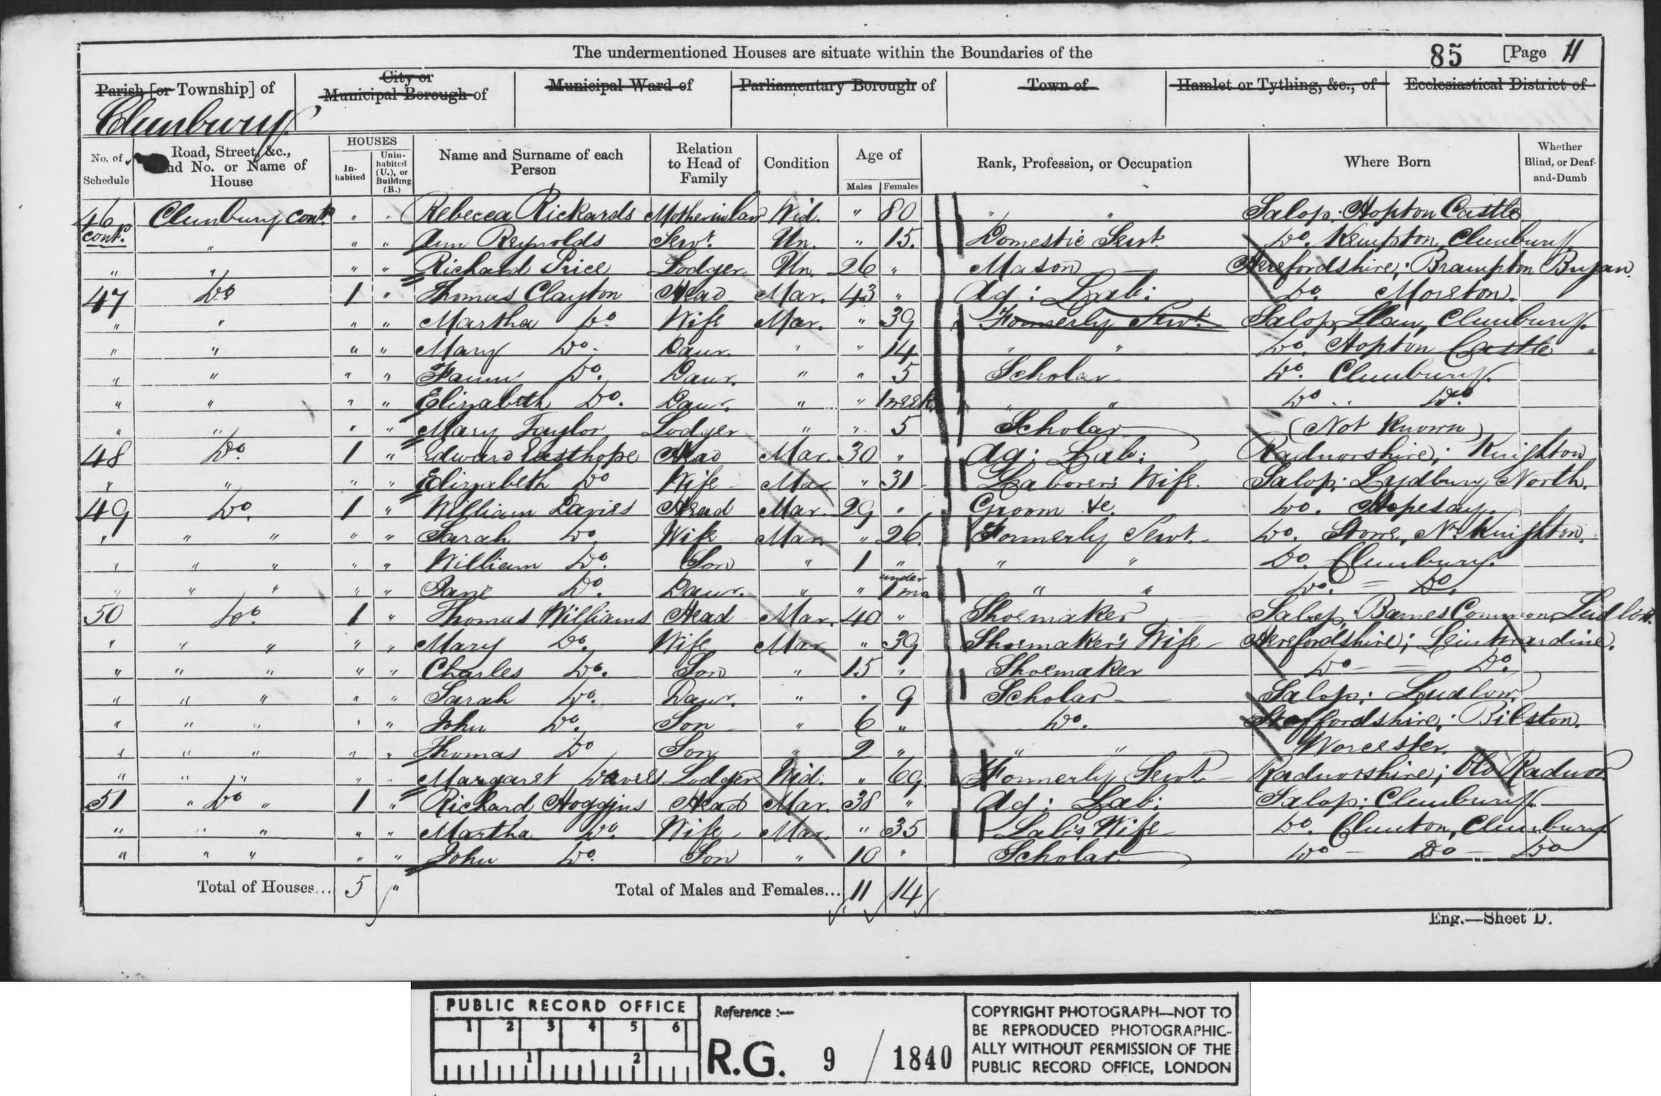 The undermentioned Houses are situate within the Boundaries of the
85 [Page 11
Parish [or Township] of City or Municipal Borough of Municipal Ward of Parliamentary Borough of Town of Hamlet or Tything, &c., of Ecclesiastical District of
Clunbury
No. of Schedule Road, Street, &c., and No. or Name of House HOUSES Inhabited Uninhabited (U.), or Building (B.) Name and Surname of each Person Relation to Head of Family Condition Age of Males Females Rank, Profession, or Occupation Where Born Whether Blind, or Deaf-and-Dumb
46 cont. Clunbury cont. " " Rebecca Rickards Motherinlaw Wid. " 80 " " Salop: Hopton Castle
" " " Ann Reynolds Servt. Un. " 15. Domestic Servt Do. Kempton, Clunbury
" " " " Richard Price Lodger Un. 26 " Mason Herefordshire; Brampton Bryan
47 Do 1 " Thomas Clayton Head Mar. 43 " Ag: Lab: Do. Moreton.
" " " " Martha Do. Wife Mar. " 39 Formerly Servt. Salop, Llan, Clunbury
" " " " Mary Do. Daur. " " 14 " " Do. Hopton Castle
" " " " Fanny Do. Daur. " " 5 Scholar Do. Clunbury.
" " " " Elizabeth Do. Daur. " " 1 week " " Do .. Do
" " " " Mary Taylor Lodger " " 5 Scholar (Not Known)
48 Do. 1 " Edward Easthope Head Mar. 30 " Ag: Lab: Radnorshire; Knighton
" " " " Elizabeth Do Wife Mar " 31 Laborer's Wife Salop: Lydbury North.
49 Do. 1 " William Davies Head Mar. 29 " Groom &c. Do. Hopesay.
" " " " " Sarah Do Wife Mar " 26. Formerly Servt. Do. Stowe, Nr. Knighton.
" " " " " William Do. Son " 1 " " " Do. Clunbury.
" " " " " Jane Do. Daur. " " under 1 mo " " Do. = Do.
50 Do. 1 " Thomas Williams Head Mar. 40 " Shoemaker Salop, Common, Ludlow.
" " " " " Mary Do. Wife Mar " 39 Shoemaker's Wife Herefordshire; Leintwardine.
" " " " " Charles Do. Son " 15 " Shoemaker Do = Do.
" " " " " Sarah Do. Daur. " " 9 Scholar Salop: Ludlow
" " " " " John Do. Son " 6 " Do. Staffordshire; Bilston.
" " " " " Thomas Do Son " 2 " " " Worcester.
" " " " " Margaret Davies Lodger Wid. " 69. Formerly Servt Radnorshire; Old Radnor
51 " Do " 1 " Richard Hoggins Head Mar. 38 " Ag: Lab: Salop: Clunbury
" " " " " Martha Do. Wife Mar. " 35 Lab's Wife Do. Clunton, Clunbury
" " " " " John Do. Son " 10 " Scholar Do - Do - Do
Total of Houses... 5 " Total of Males and Females... 11 14
Eng.—Sheet D.
PUBLIC RECORD OFFICE
1 2 3 4 5 6
1 2
Reference :—
R.G. 9 / 1840
COPYRIGHT PHOTOGRAPH—NOT TO
BE REPRODUCED PHOTOGRAPHIC-
ALLY WITHOUT PERMISSION OF THE
PUBLIC RECORD OFFICE, LONDON